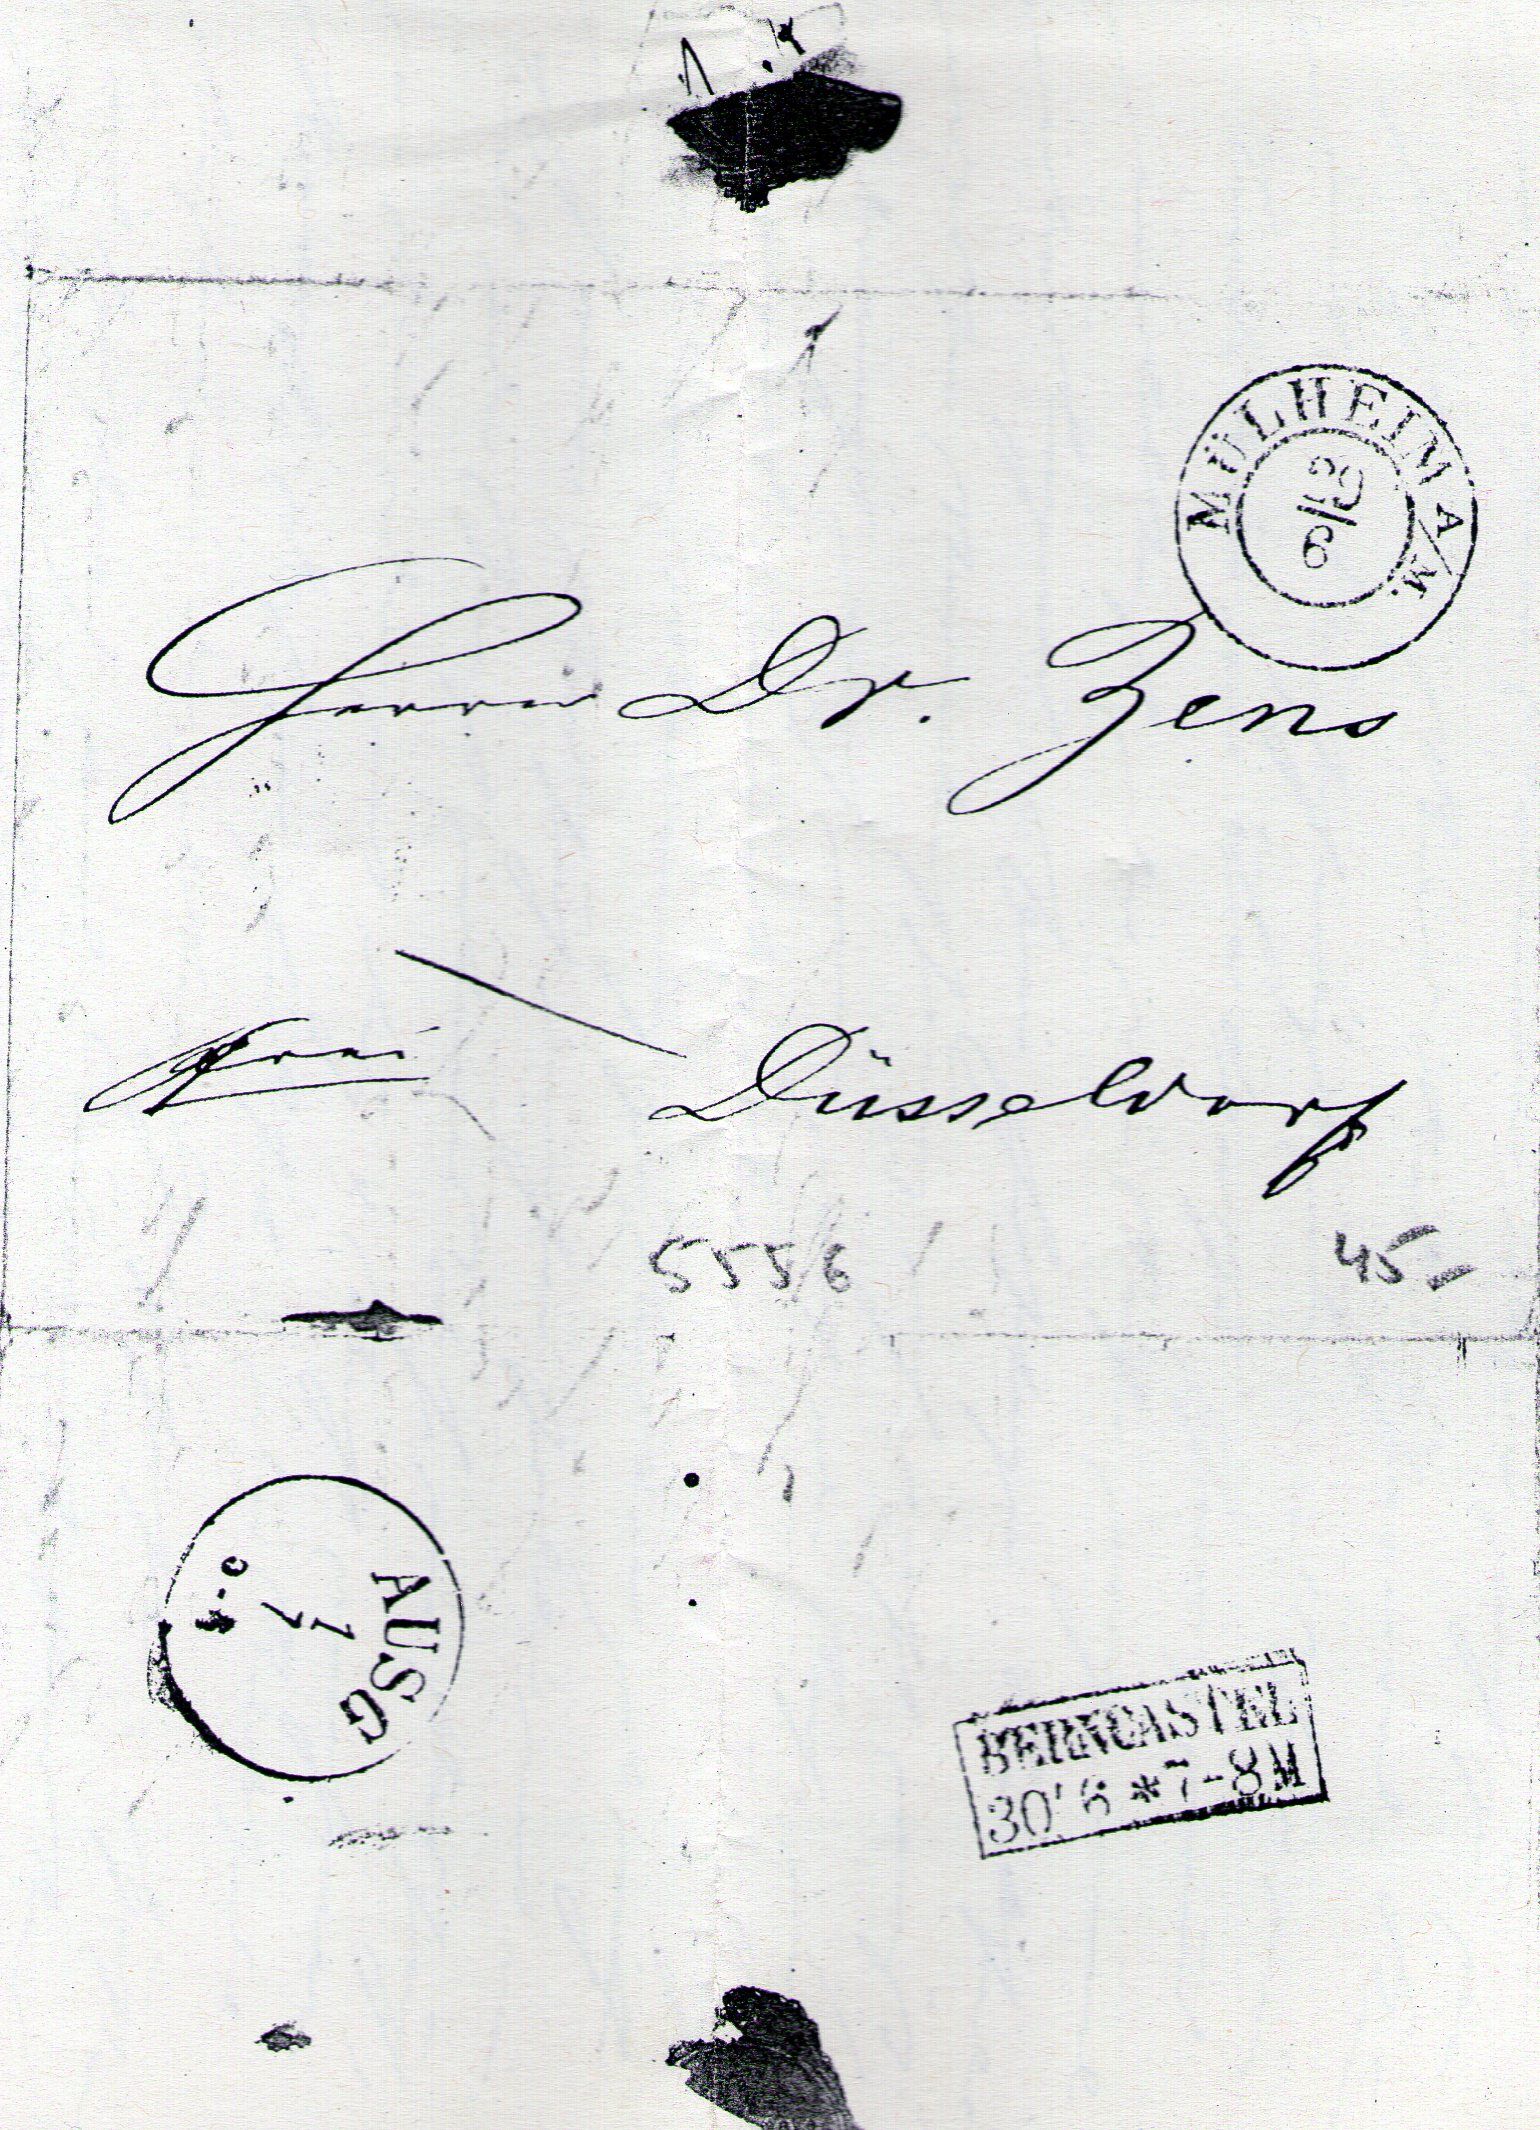 MÜLHEIM A/M.
29/6
Herrn Dr. Zens
frei
Düsseldorf
5556 45-
AUSG
1 7
BERNCASTEL
30 6 * 7-8M